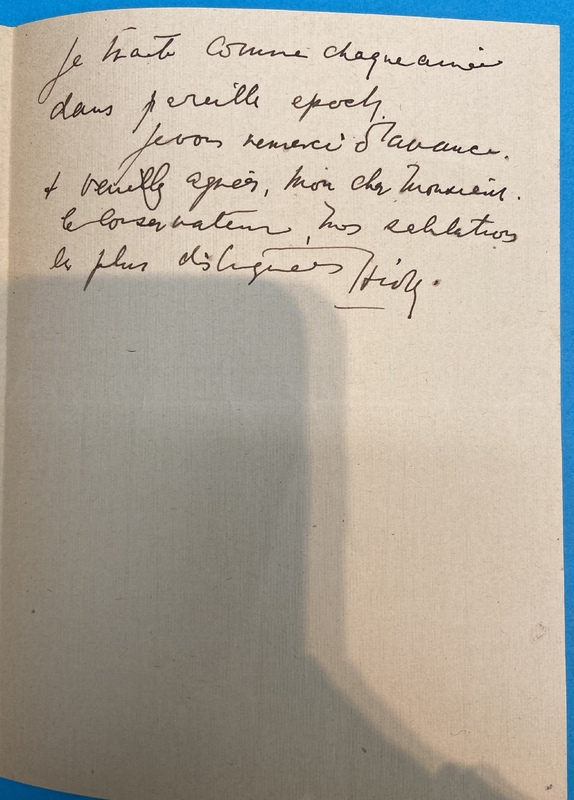 Je traite comme chaque année
dans pareille epoch.
Je vous remerci d'avance.
+ veuillz agréer, mon cher Monsieur.
le Conservateur, mes salutations
les plus distiguées